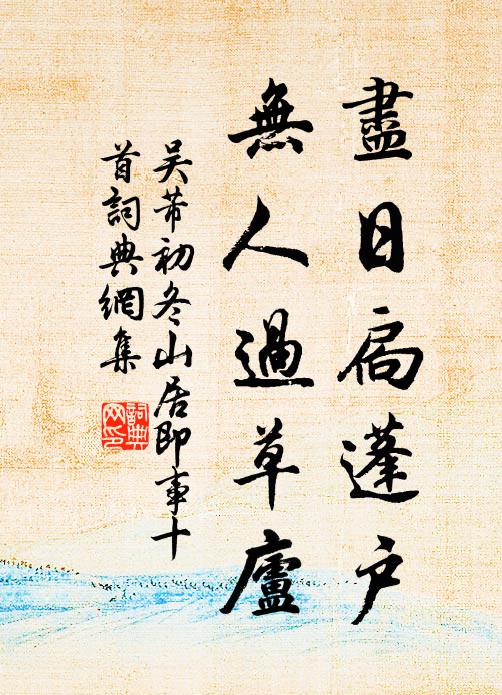 盡日扃蓬户
無人過草廬
吴芾初冬山居即事十
首詞典網集
詞典網印